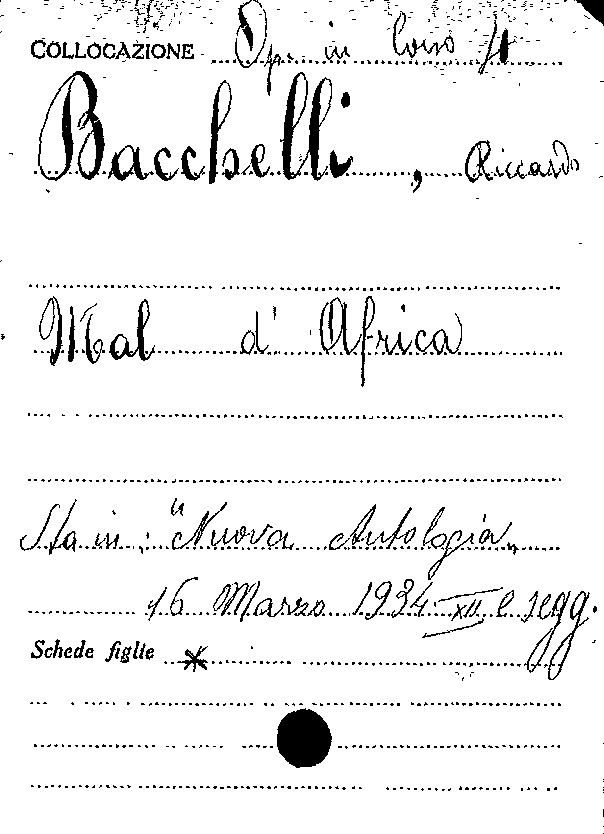 COLLOCAZIONE Op. in Corso 41
Bacchelli, Riccardo
Mal d'Africa
Sta in: "Nuova Antologia„
16 Marzo 1934-XII e segg.
Schede figlie *